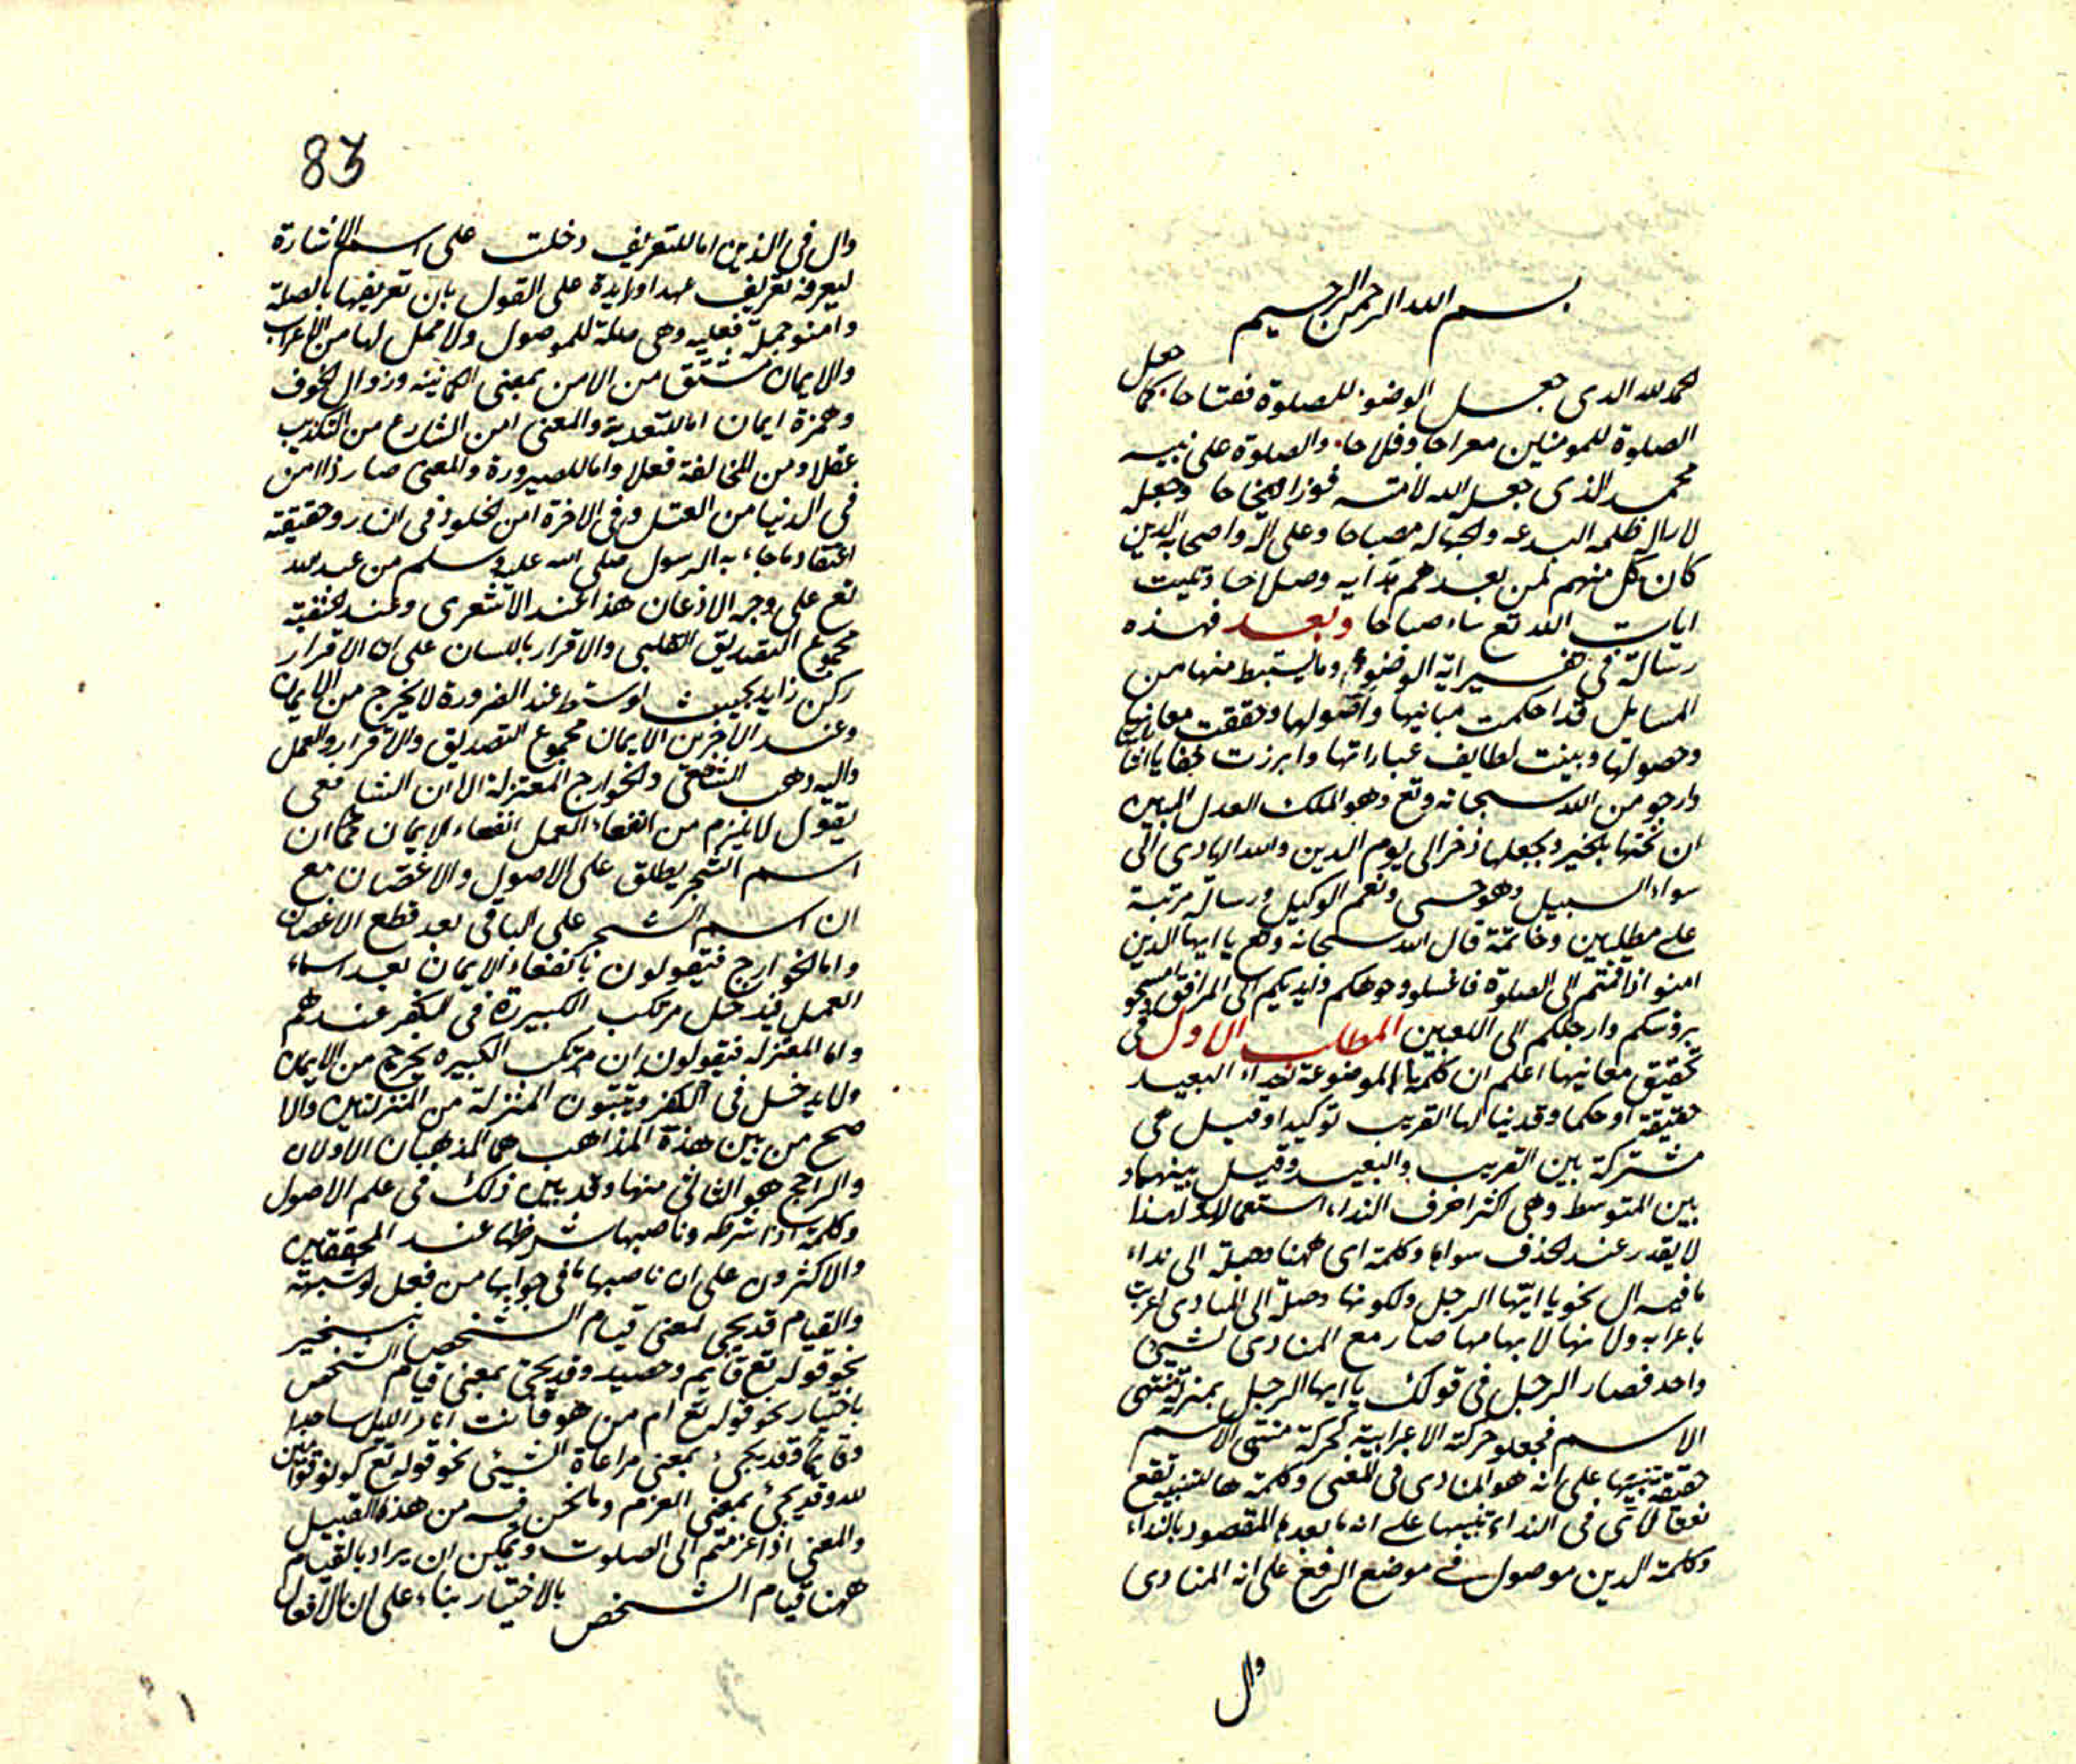 بسم الله الرحمن الرحيم
الحمد لله الدى جعل الوضوء للصلوة مفتاحا كما جعل
الصلوة للمومنين معراجا وفلاحا والصلوة على نبيه
محمد الذى جعل الله لامته فوزا ونجاحا وجعله
لازاله ظلمه البدعه والجهاله مصباحا وعلى اله واصحابه الدين
كان كل منهم لمن بعدهم هدايه وصلاحا وتليت
ايات الله تع مساء صباحا وبعد فهذه
رسالة فى تفسير اية الوضوء وما يستنبط منها من
المسايل قد احكمت مبانيها واصولها وحققت معانيها
وحصولها وبينت لطايف عباراتها وابرزت خفايا اشاراتها
وارجو من الله سبحانه وتع وهو الملك العدل المبين
ان يختمها بالخير ويجعلها ذخرا لى يوم الدين والله الهادى الى
سواء السبيل وهو حسبى ونعم الوكيل ورسالة مرتبة
على مطلبين وخاتمة قال الله سبحانه وتع يا ايها الدين
امنو اذا قمتم الى الصلوة فاغسلو وجوهكم وايديكم الى المرافق وامسحو
برؤسكم وارجلكم الى الكعبين المطلب الاول فى
تحقيق معانيها اعلم ان كلمة يا الموضوعة لنداء البعيد
حقيقة او حكما وقد ينادى بها القريب توكيدا وقيل هى
مشتركة بين القريب والبعيد وقيل بينهما و
بين المتوسط وهى اكثر احرف النداء استعمالا ولهذا
لا يقدر عند الحذف سواها وكلمة اى ههنا وصلة الى نداء
ما فيه ال نحو يا ايها الرجل ولكونها وصلة الى المنادى اعربت
باعرابه ولانها لابهامها صار مع المنادى كشيئ
واحد فصار الرجل فى قولك يا ايها الرجل بمنزلة منتهى
الاسم فجعلو حركته الاعرابية كحركة منتهى الاسم
حقيقة تنبيها على انه هو المنادى فى المعنى وكلمة ها للتنبيه تقع
نعتا لاى فى النداء تنبيها على انه ما بعدها المقصود بالنداء
وكلمة الدين موصول فى موضع الرفع على انه المنادى
وال
83
وال فى الذين اما للتعريف دخلت على اسم الاشارة
ليعرفه تعريف عهد او زايدة على القول بان تعريفها بالصلة
وامنو جملة فعليه وهى صلة للموصول ولا محل لها من الاعراب
والايمان مشتق من الامن بمعنى الطمانينه وزوال الخوف
وهمزة ايمان اما للتعدية والمعنى امن الشارع من التكذيب
عقلا ومن المخالفة فعلا واما للصيرورة والمعنى صار ذا امن
فى الدنيا من القتل وفى الاخرة امن الخلود فى النار وحقيقته
اعتقاد ما جاء به الرسول صلى الله عليه وسلم من عند الله
تع على وجه الاذعان هذا عند الاشعرى وعند الحنفية
مجموع التصديق القلبى والاقرار باللسان على ان الاقرار
ركن زايد بحيث لو سقط عند الضرورة لا يخرج من الايمان
وعند الاخرين الايمان مجموع التصديق والاقرار والعمل
واليه ذهب الشافعى والخوارج المعتزلة الا ان الشافعى
يقول لا يلزم من انتفاء العمل انتفاء الايمان كما ان
اسم الشجر يطلق على الاصول والاغصان مع
ان اسم الشجر على الباقى بعد قطع الاغصان
واما الخوارج فيقولون بانتفاء الايمان بعد انتفاء
العمل فيدخل مرتكب الكبيرة فى الكفر عندهم
واما المعتزله فيقولون ان مرتكب الكبيره يخرج من الايمان
ولا يدخل فى الكفر ويثبتون المنزلة من المنزلتين والا
صح من بين هذه المذاهب هما المذهبان الاولان
والراجح هو الثانى منها وقد بين ذلك فى علم الاصول
وكلمة اذا شرطه وناصبها شرطها عند المحققين
والاكثرون على ان ناصبها ما فى جوابها من فعل او شبهه
والقيام قد يجى لمعنى قيام الشخص بتسخير
نحو قوله تع قايم وحصيد وقد يجئ بمعنى قيام الشخص
باختيار نحو قوله تع ام من هو قانت اناء الليل ساجدا
وقايما وقد يجئ بمعنى مراعاة الشيئ نحو قوله تع كونو قوامين
لله وقد يجئ بمعنى العزم وما نحن فيه من هذه القبيل
والمعنى اذا عزمتم الى الصلوت ويمكن ان يراد بالقيام
ههنا قيام الشخص بالاختيار بناء على ان الافعال